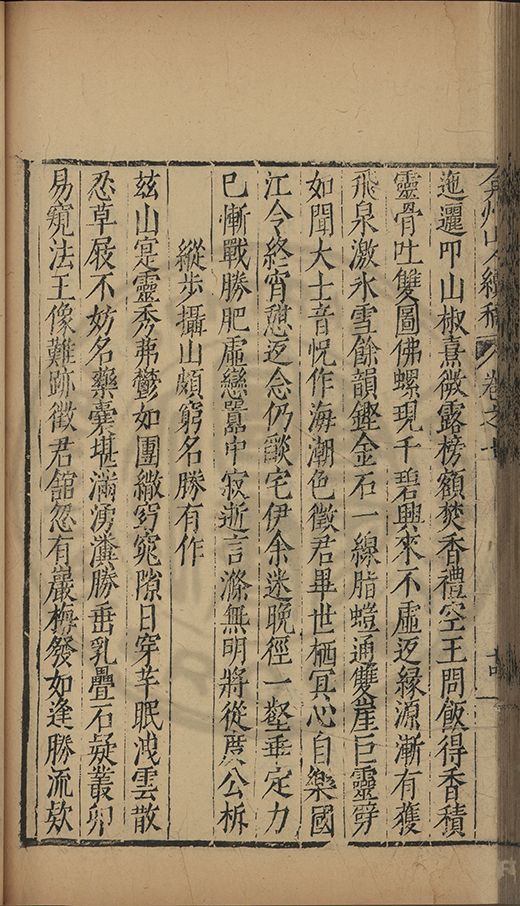 弇州山人續稿 卷之七 十四
迤邐叩山椒熹微露榜額焚香禮空王問飯得香積
靈骨吐雙圖佛螺現千碧興來不虛迈緣源漸有獲
飛泉激氷雪餘韻鏗金石一線脂螘通雙崖巨靈擘
如聞大士音恍作海潮色徵君畢世栖冥心自樂國
江令終宵憩迈念仍斁宅伊余迷晚徑一壑垂定力
已慚戰勝肥虛戀囂中寂逝言滌無明將從度公析
縱步攝山頗窮名勝有作
兹山寔靈秀岪鬱如團繖窈窕隙日穿芊眠洩雲散
忍草屐不妨名藥囊堪滿湧瀵勝垂乳疊石疑叢卵
易窺法王像難跡徵君舘忽有巖梅發如逢勝流欵